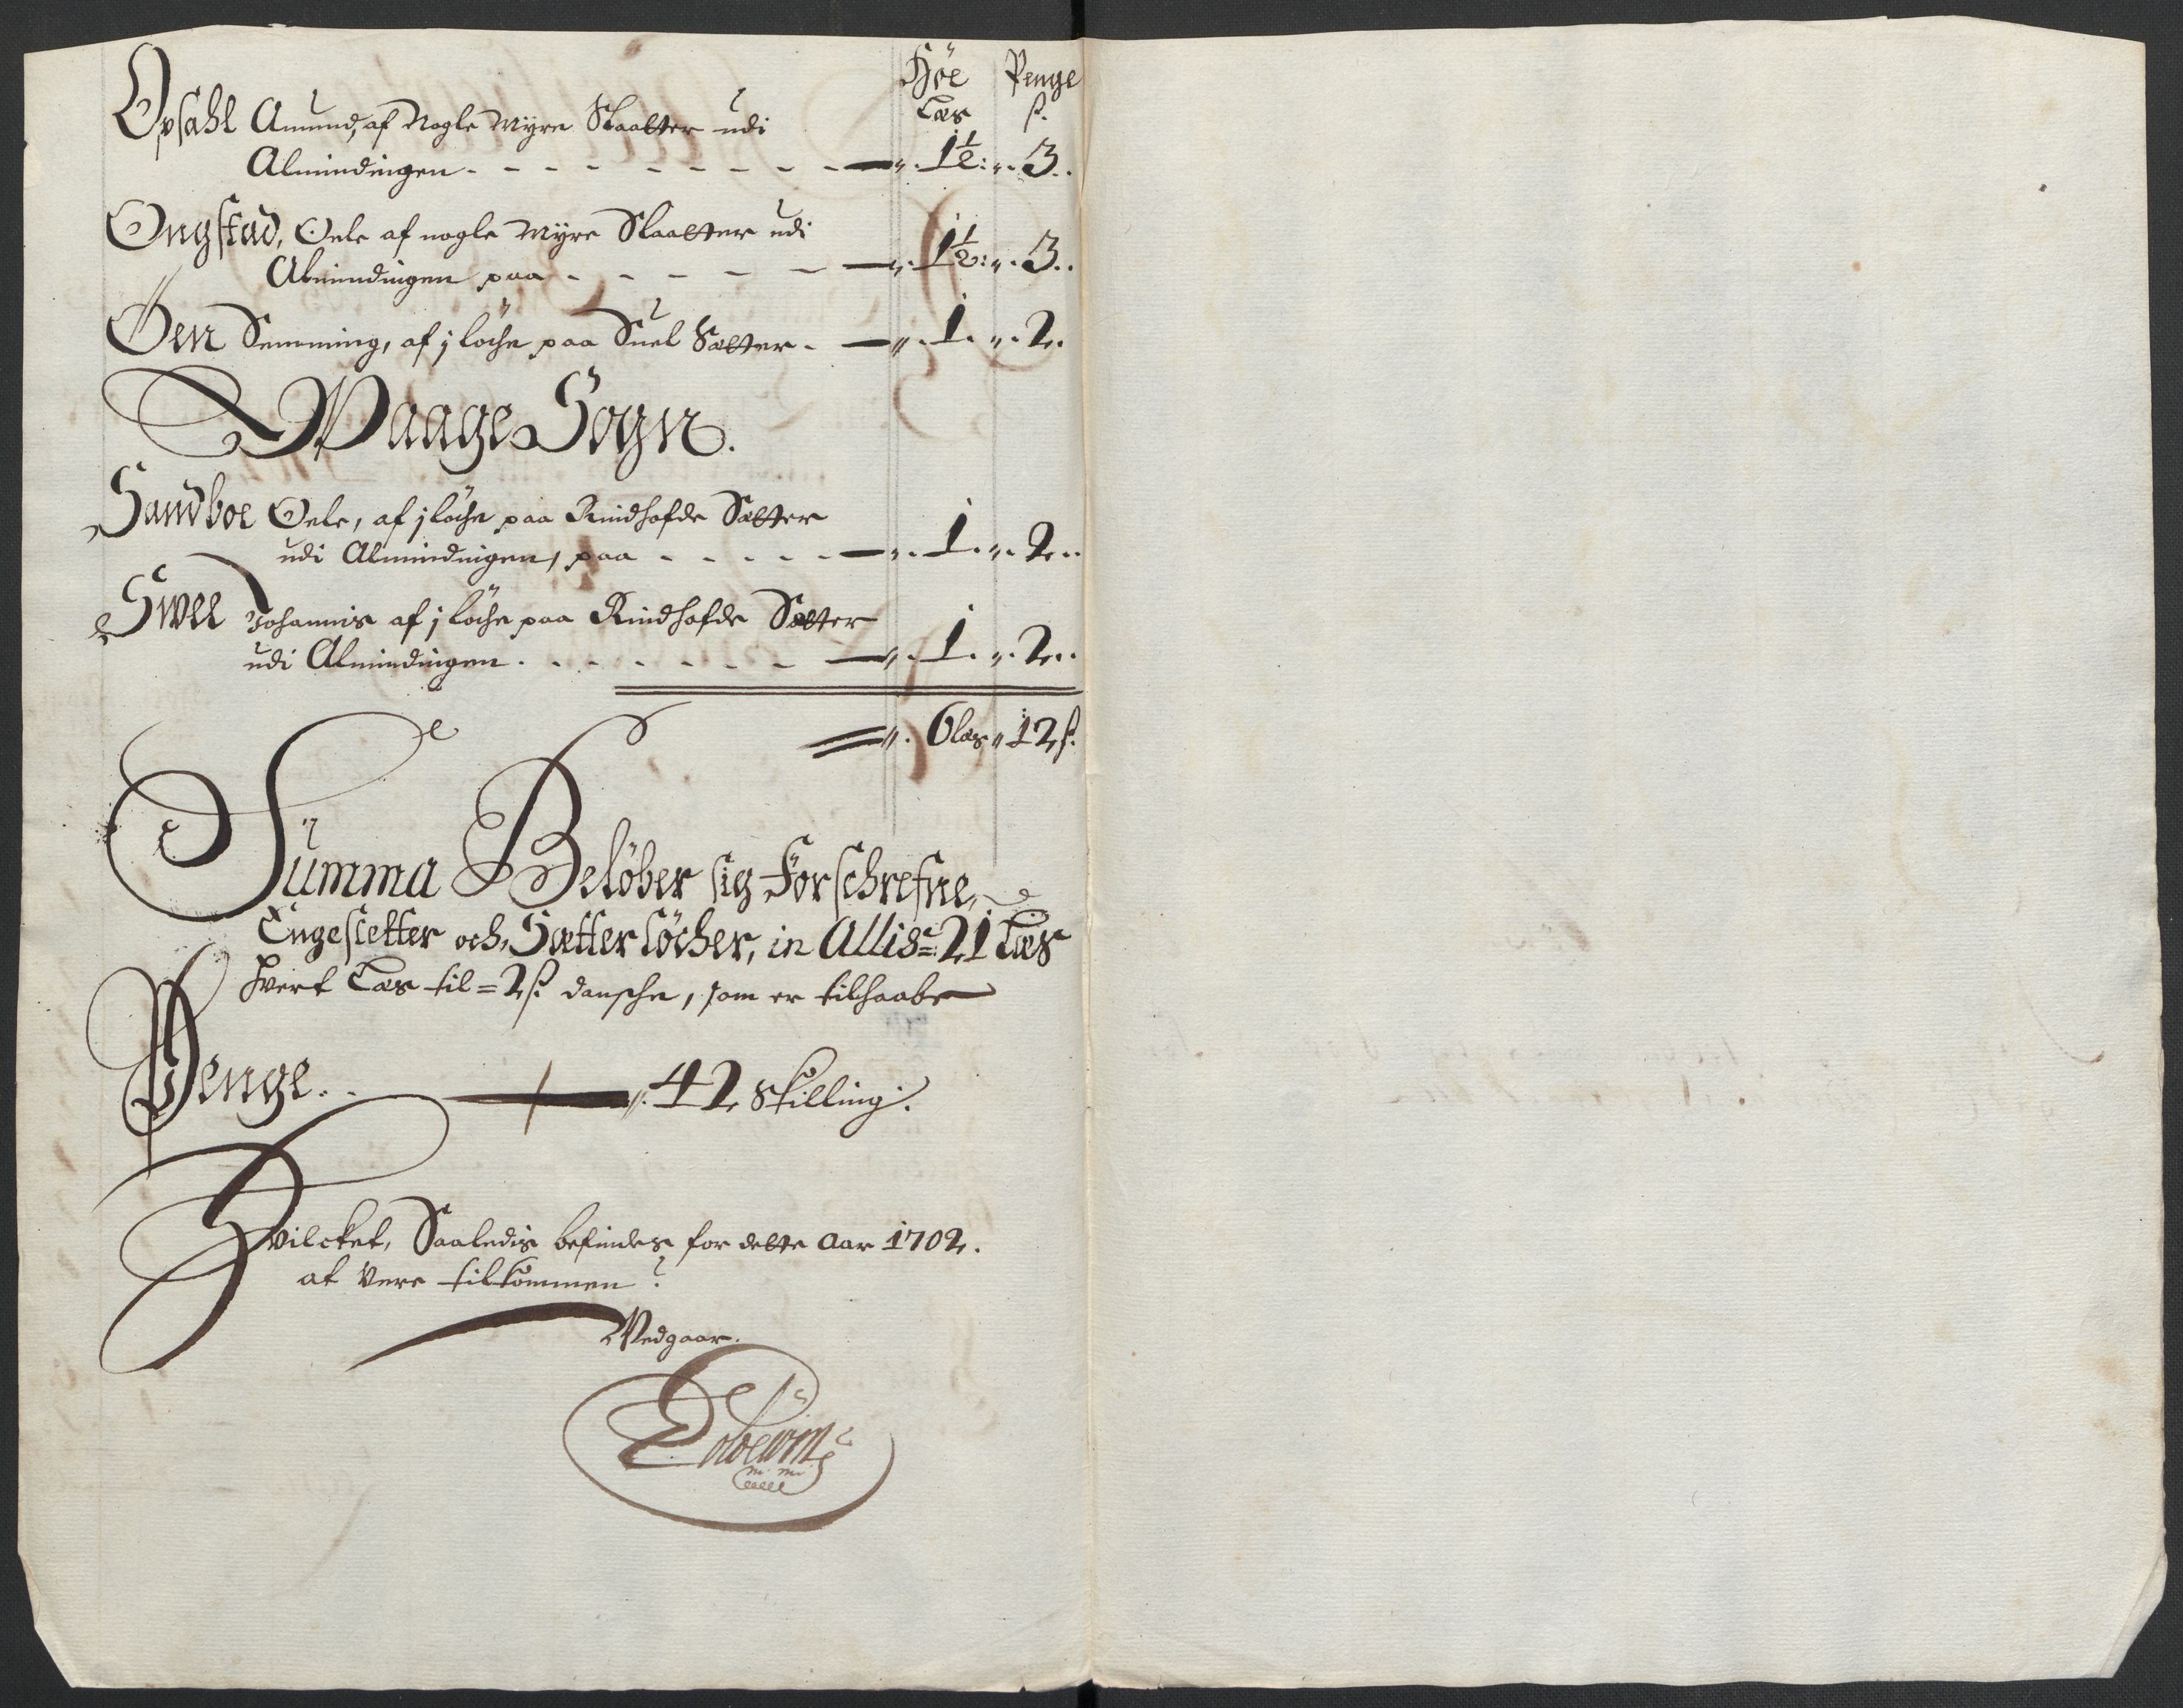 Höe Penge
Læs ß.
Opsahl Amund, af Nogle Myre Slaatter udi
Almindingen - - - - - - - - - 1½: 3.
Ongstad, Oele af nogle Myre Slaatter udi
Almindingen paa - - - - - 1½: 3.
Öen Semming, af j löche paa Suel Sætter - 1. 2.
Waage Sogn.
Sandboe Oele, af j löche paa Rindhofde Sætter
udi Almindingen, paa - - - - - 1. 2.
Swee Johannis af j löche paa Rindhofde Sætter
udi Almindingen . - - - - - - 1. 2.
6 læs 12 ß.
Summa Belöber sig Forschrefne
Engesletter och Sætter löcher, in Allis = 21 Læs
hvert Læs til = 2 ß. dansche, som er tilhaabe
Penge. . 42 Skilling.
Hvilcket, Saaledis befindes for dette Aar 1702.
at Vere tilkommen
Vedgaar.